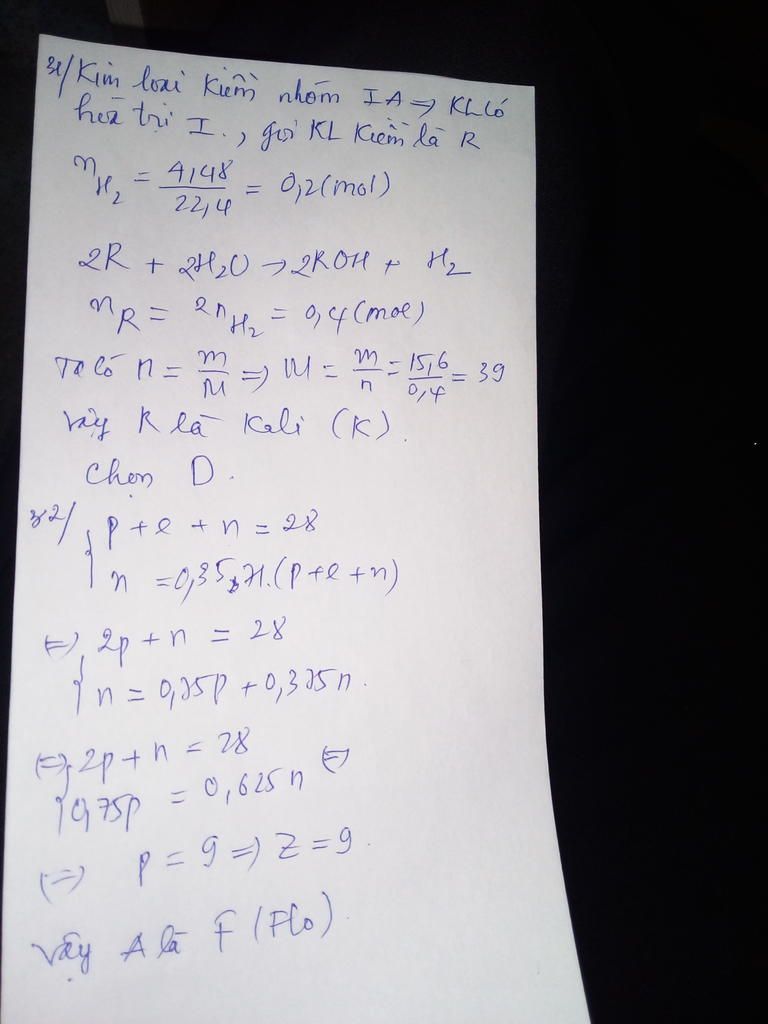 31/ Kim loại Kiềm nhóm IA => KL có
hóa trị I., gọi KL Kiềm là R
n_H2 = 4,48/22,4 = 0,2 (mol)
2R + 2H2O -> 2ROH + H2
n_R = 2n_H2 = 0,4 (mol)
Ta có n = m/M => M = m/n = 15,6/0,4 = 39
Vậy R là Kali (K).
Chọn D.
32/ { p + e + n = 28
n = 0,35,71.(p+e+n)
<=> { 2p + n = 28
n = 0,75p + 0,375n.
<=> { 2p + n = 28
0,75p = 0,625n <=>
<=> p = 9 => Z = 9.
Vậy A là F (Flo).